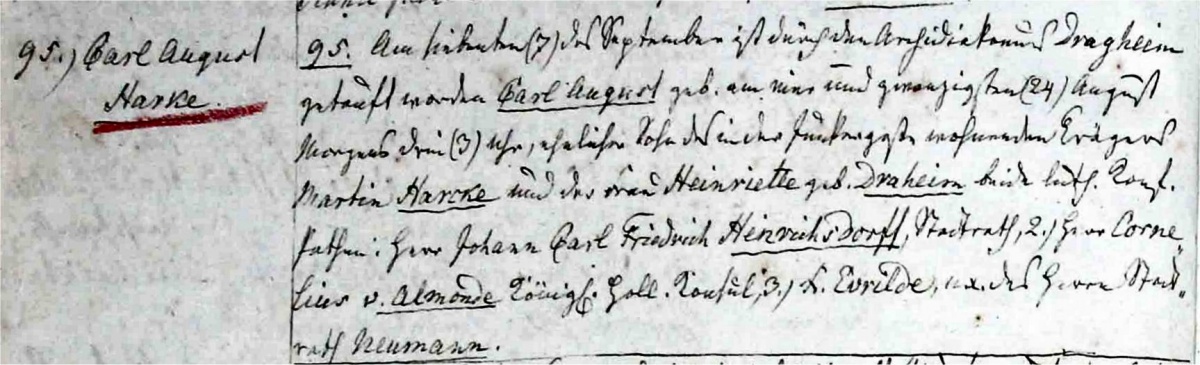 95.) Carl August
Harke.
95. Am siebenten (7) des September ist durch den Archidiakonus Dragheim
getauft worden Carl August geb. am vier und zwanzigsten (24) August
Morgens drei (3) Uhr, ehelicher Sohn des in der Junkergasse wohnenden Trägers
Martin Harcke und der Frau Heinriette geb. Draheim beide luth. Conf.
Pathen: Herr Johann Carl Friedrich Heinrichsdorff, Stadtrath, 2.) Herr Corne„
lius v. Almonde Königl. Holl. Konsul, 3.) F. Evrilde, ux. des Herrn Stadt„
rath Neumann.